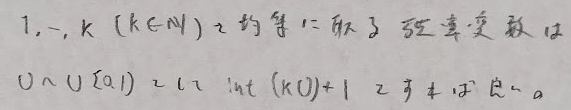 1,-,K (K∈ℕ)を均等に取る確率変数は
U～U[0,1)として int(KU)+1とすれば良い。